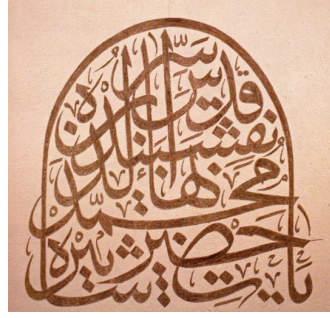 يا حضرت پير
سيد محمد
بهاء الدين
نقشبند
قدس سره